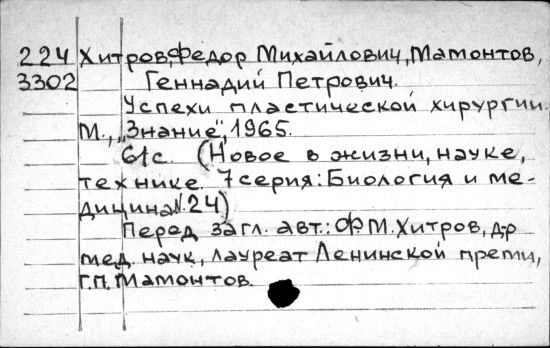 224 Хитров, Федор Михайлович, Мамонтов,
3302 Геннадий Петрович.
Успехи пластической хирургии.
М., „Знание", 1965.
61с. (Новое в жизни, науке,
технике. 7 серия: Биология и ме-
дицина. №24)
Перед загл. авт.: Ф.М. Хитров, д-р
мед. наук, лауреат Ленинской премии,
Г.П. Мамонтов.